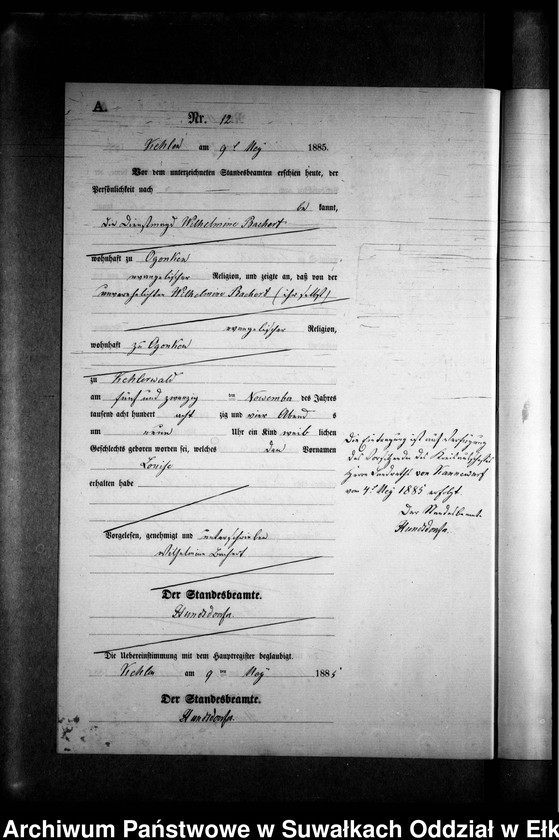 A.
Nr. 12.
am 9t May 1885.
Vor dem unterzeichneten Standesbeamten erschien heute, der
Persönlichkeit nach
be kannt,
die Dienstmagd Wilhelmine Bachert
wohnhaft zu Ogonken
evangelischer Religion, und zeigte an, daß von der
unverehelichten Wilhelmine Bachert (ihr selbst)
evangelischer Religion,
wohnhaft zu Ogonken
zu
am fünf und zwanzig ten November des Jahres
tausend acht hundert acht zig und vier Abend s
um neun Uhr ein Kind weib lichen
Geschlechts geboren worden sei, welches den Vornamen
Louise
erhalten habe
Vorgelesen, genehmigt und unterschrieben
Wilhelmine Bachert
Der Standesbeamte.
Die Uebereinstimmung mit dem Hauptregister beglaubigt.
am 9 ten May 1885
Der Standesbeamte.
Die Eintragung ist nach Verfügung
des Vorsitzenden des Kreisausschusses
Herrn Landraths von
vom 4t May 1885 erfolgt.
Der Standesbeamte.
Archiwum Państwowe w Suwałkach Oddział w Ełk